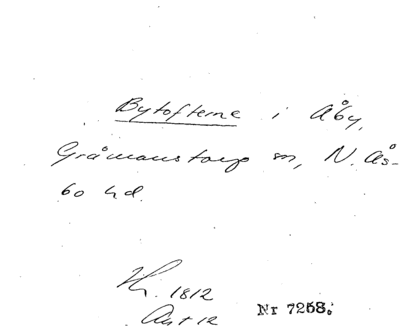 Bytofterne i Åby,
Gråmanstorp sn, N. Ås-
bo hd.
1812
Akt 12
Nr 7268.